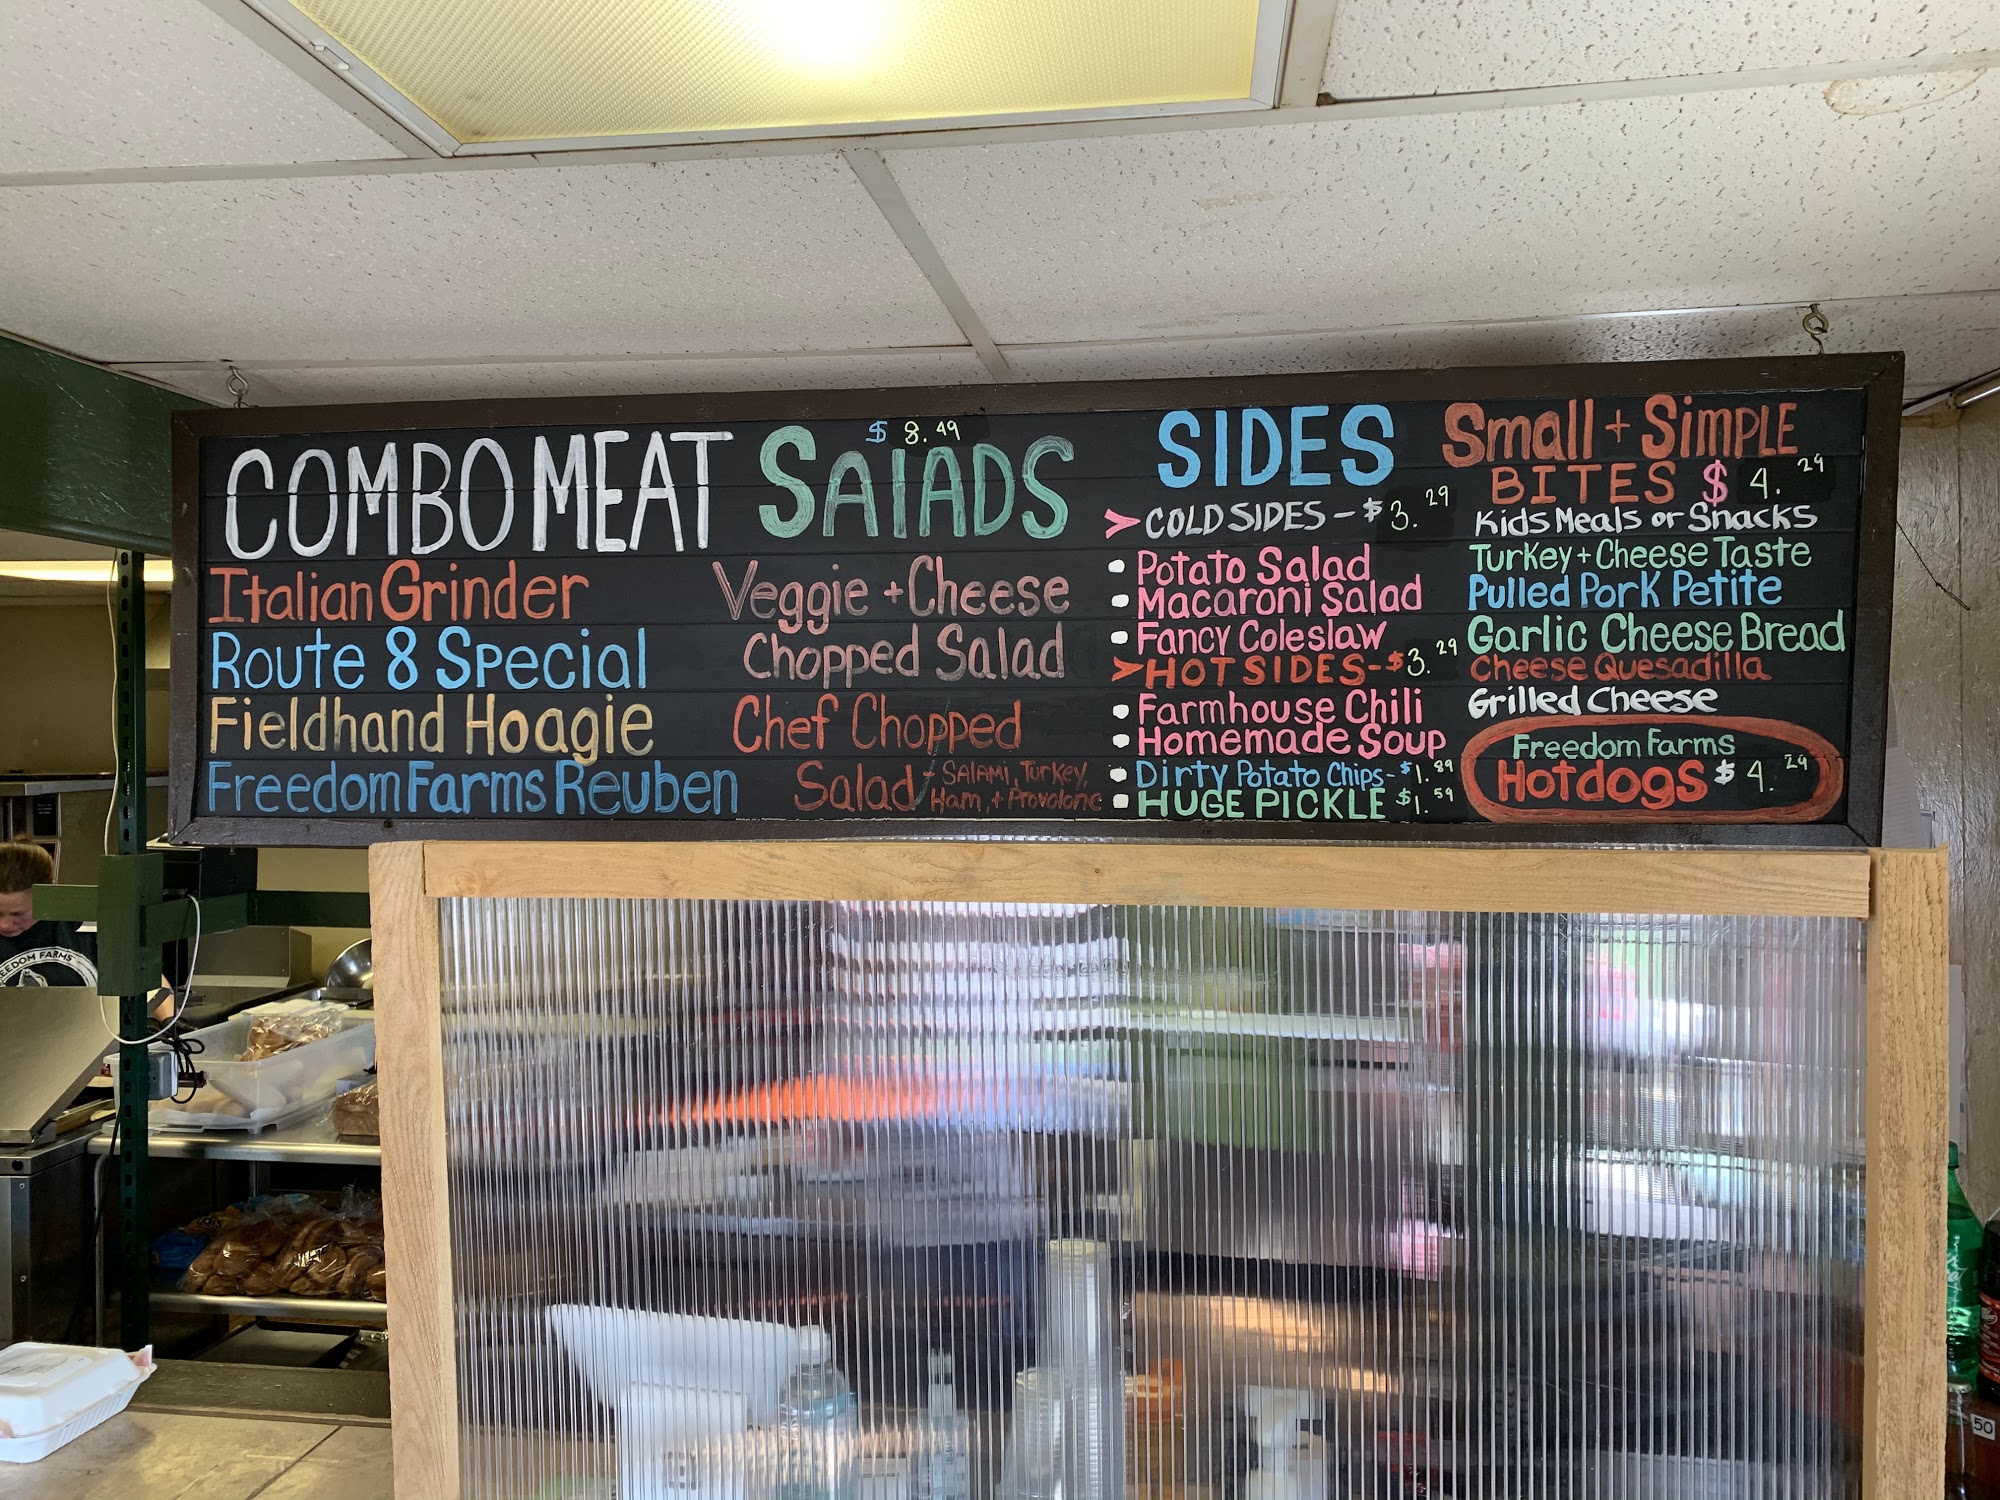 COMBO MEAT
Italian Grinder
Route 8 Special
Fieldhand Hoagie
Freedom Farms Reuben
$ 8.49
SalADS
Veggie + Cheese
Chopped Salad
Chef Chopped
Salad - SALAMI, TURKEY,
HAM, + Provolone
SIDES
> COLD SIDES - $3.29
• Potato Salad
• Macaroni Salad
• Fancy Coleslaw
> HOT SIDES - $3.29
• Farmhouse Chili
• Homemade Soup
• Dirty Potato Chips - $1.89
• HUGE PICKLE $1.59
Small + SimPLE
BITES $ 4.29
Kids Meals or Snacks
Turkey + Cheese Taste
Pulled Pork Petite
Garlic Cheese Bread
Cheese Quesadilla
Grilled Cheese
Freedom Farms
Hotdogs $4.29
FARMS
50